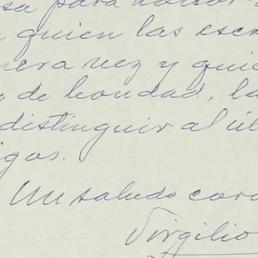 para
quien las esc
nera vez y quie
de bondad, la
distinguir al úl
igos.
Un saludo cord
Virgilio